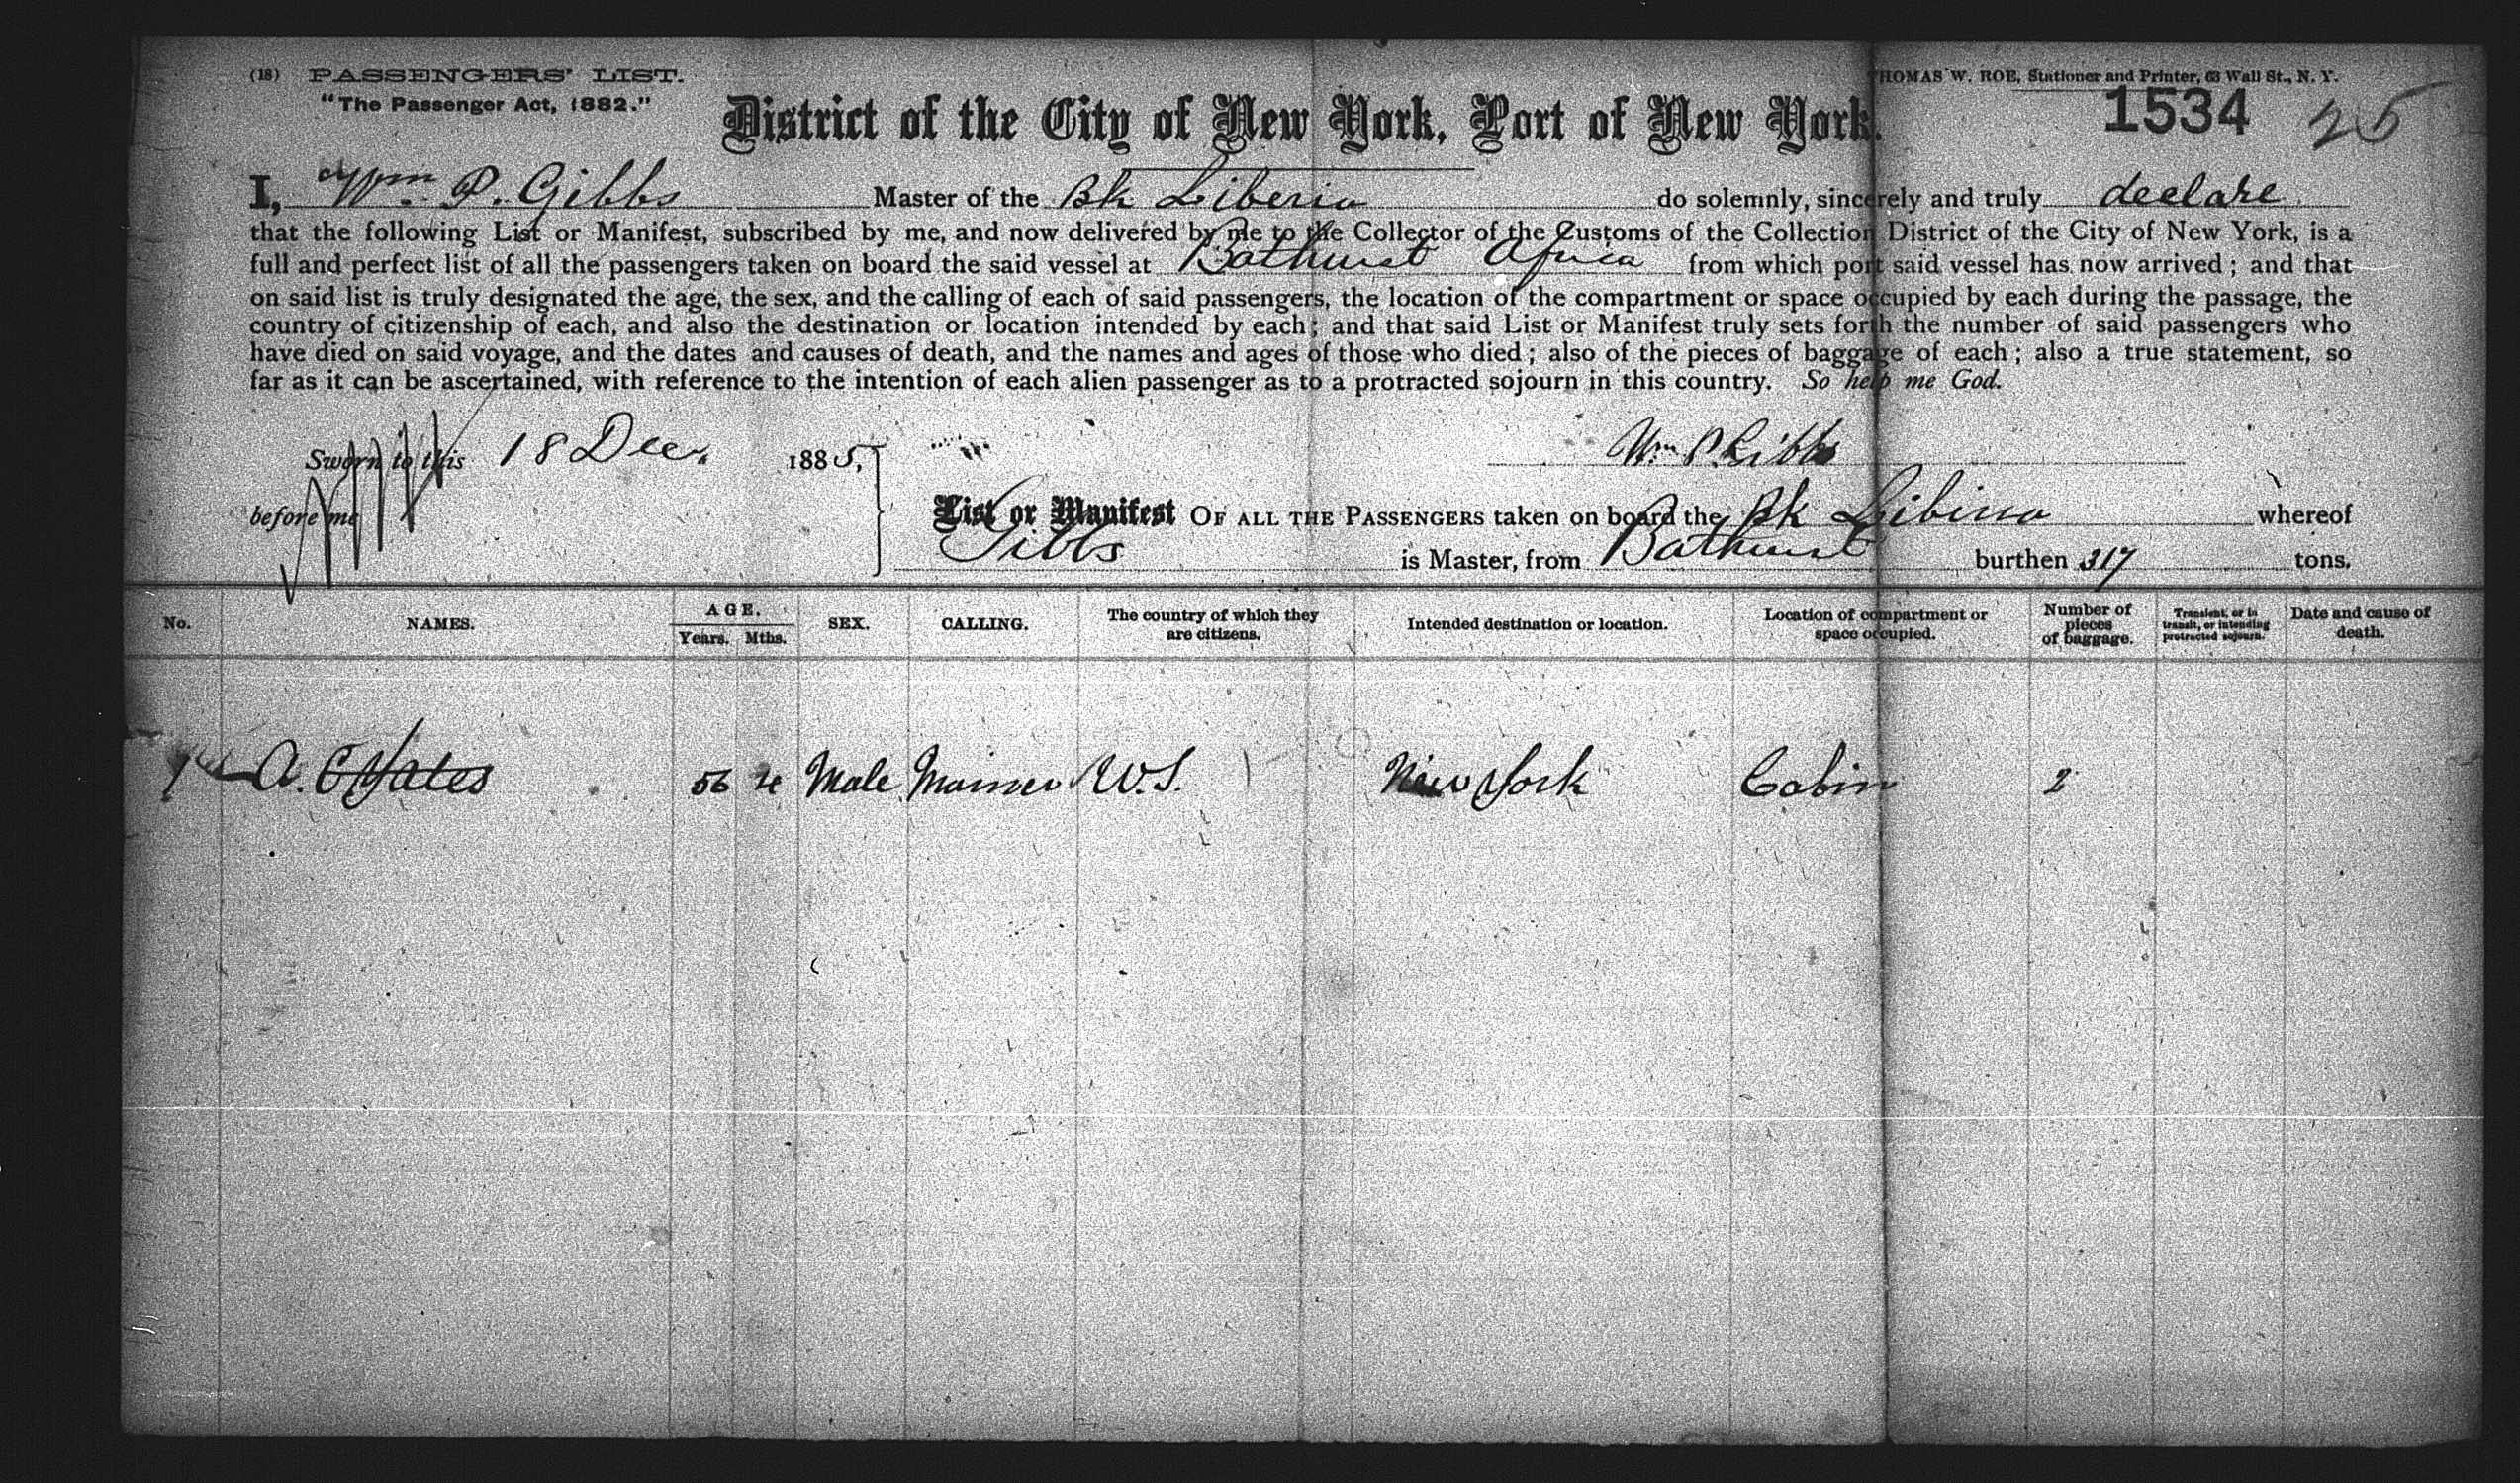 (18) PASSENGERS' LIST.
"The Passenger Act, 1882."
THOMAS W. ROE, Stationer and Printer, 63 Wall St., N. Y.
1534 25
District of the City of New York, Port of New York.
I, Wm P. Gibbs Master of the Bk Liberia do solemnly, sincerely and truly declare
that the following List or Manifest, subscribed by me, and now delivered by me to the Collector of the Customs of the Collection District of the City of New York, is a
full and perfect list of all the passengers taken on board the said vessel at Bathurst Africa from which port said vessel has now arrived; and that
on said list is truly designated the age, the sex, and the calling of each of said passengers, the location of the compartment or space occupied by each during the passage, the
country of citizenship of each, and also the destination or location intended by each; and that said List or Manifest truly sets forth the number of said passengers who
have died on said voyage, and the dates and causes of death, and the names and ages of those who died; also of the pieces of baggage of each; also a true statement, so
far as it can be ascertained, with reference to the intention of each alien passenger as to a protracted sojourn in this country. So help me God.
Sworn to this 18 Dec. 1885, Wm P. Gibbs
before me
List or Manifest OF ALL THE PASSENGERS taken on board the Bk Liberia whereof
Gibbs is Master, from Bathurst burthen 317 tons.
No. NAMES. AGE. Years. Mths. SEX. CALLING. The country of which they are citizens. Intended destination or location. Location of compartment or space occupied. Number of pieces of baggage. Transient, or in transit, or intending protracted sojourn. Date and cause of death.
1 A. C Yates 56 4 Male Mariner U.S. New York Cabin 2